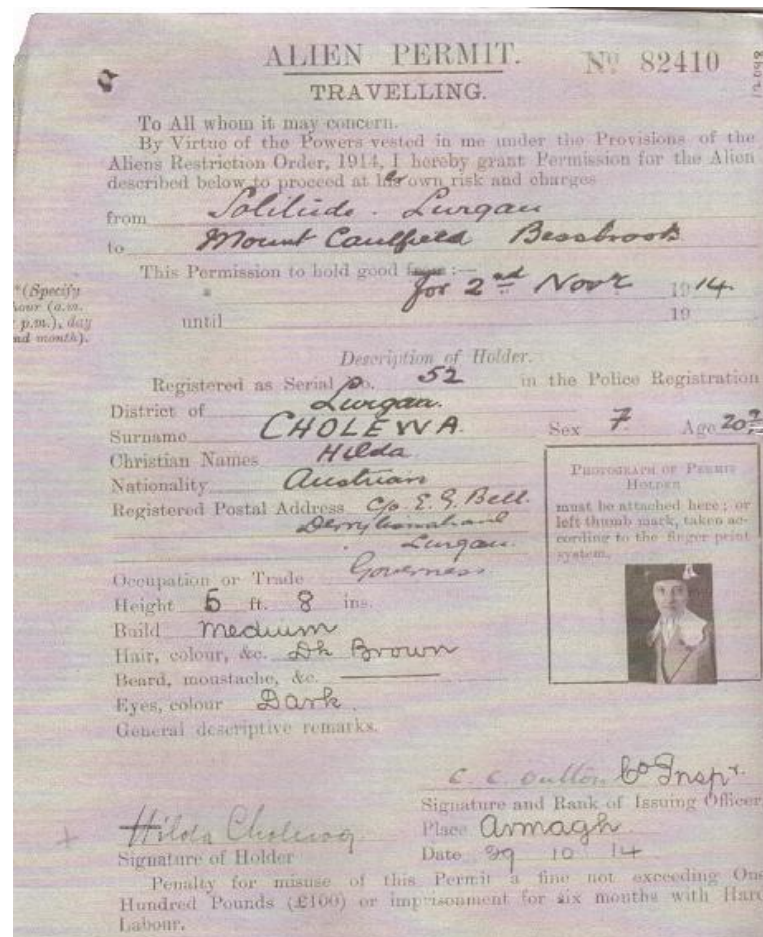 ALIEN PERMIT.
No 82410
TRAVELLING.
To All whom it may concern.
By Virtue of the Powers vested in me under the Provisions of the
Aliens Restriction Order, 1914, I hereby grant Permission for the Alien
described below to proceed at her own risk and charges
from Solitude. Lurgan
to Mount Caulfield Bessbrook
This Permission to hold good from :—
for 2nd Novr 1914
*(Specify
hour (a.m.
p.m.), day
nd month).
until 19
Description of Holder.
Registered as Serial No. 52 in the Police Registration
District of Lurgan.
Surname CHOLEWA. Sex F Age 20
Christian Names Hilda.
Nationality Austrian
Registered Postal Address C/o E. G. Bell.
Lurgan.
Occupation or Trade Governess.
Height 5 ft. 8 ins.
Build Medium
Hair, colour, &c. Dk Brown
Beard, moustache, &c.
Eyes, colour Dark.
General descriptive remarks.
PHOTOGRAPH OF PERMIT
HOLDER
must be attached here; or
left thumb mark, taken ac-
cording to the finger print
system.
C. C. Oulton Co Inspr.
Signature and Rank of Issuing Officer
Hilda Cholewa
Signature of Holder
Place Armagh
Date 29 10 14
Penalty for misuse of this Permit a fine not exceeding One
Hundred Pounds (£100) or imprisonment for six months with Hard
Labour.